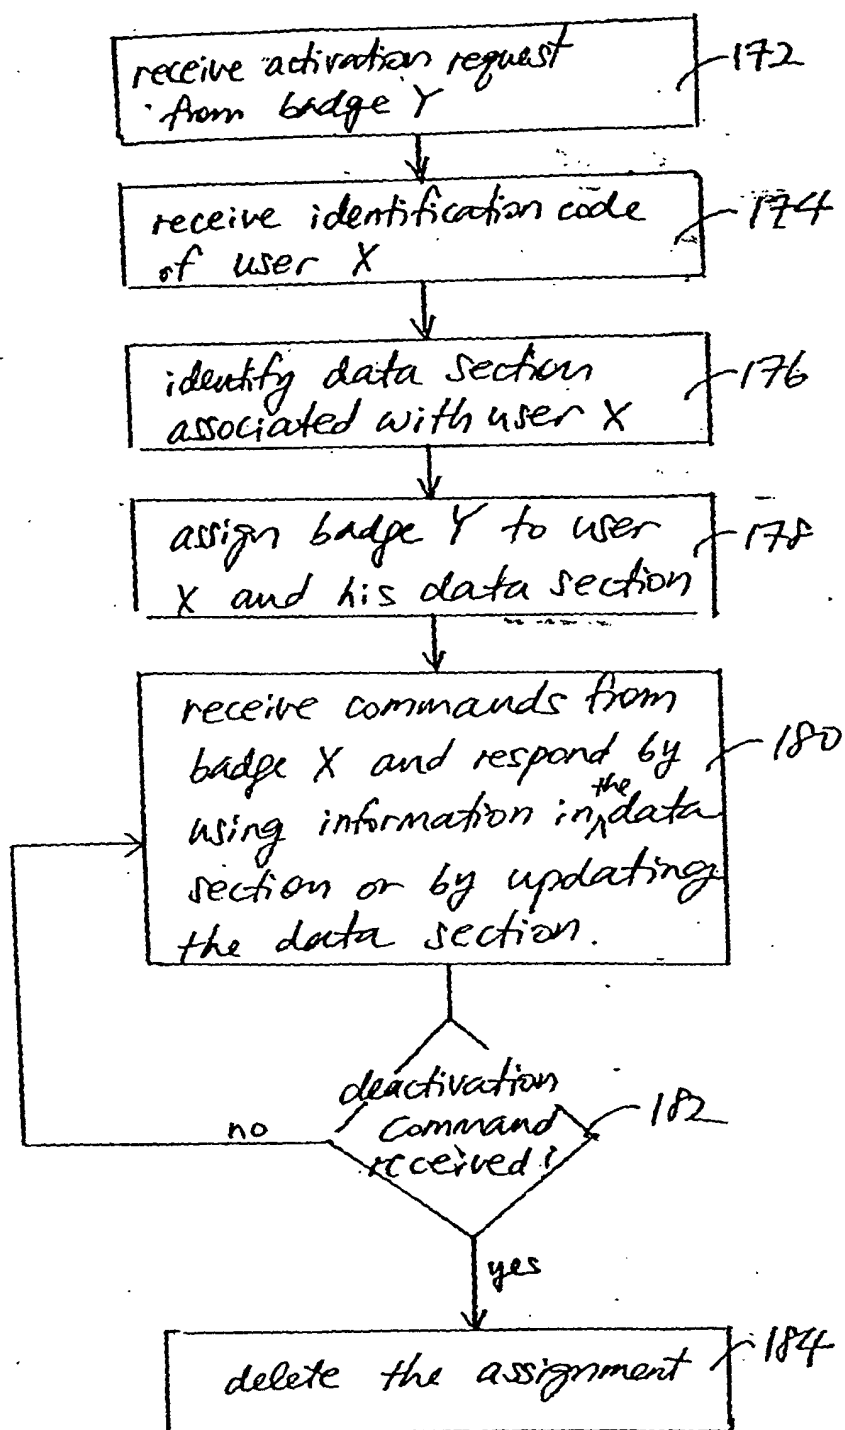 receive activation request
from badge Y
172
receive identification code
of user X
174
identify data section
associated with user X
176
assign badge Y to user
X and his data section
178
receive commands from
badge X and respond by
using information in the data
section or by updating
the data section.
180
deactivation
command
received?
182
no
yes
delete the assignment
184